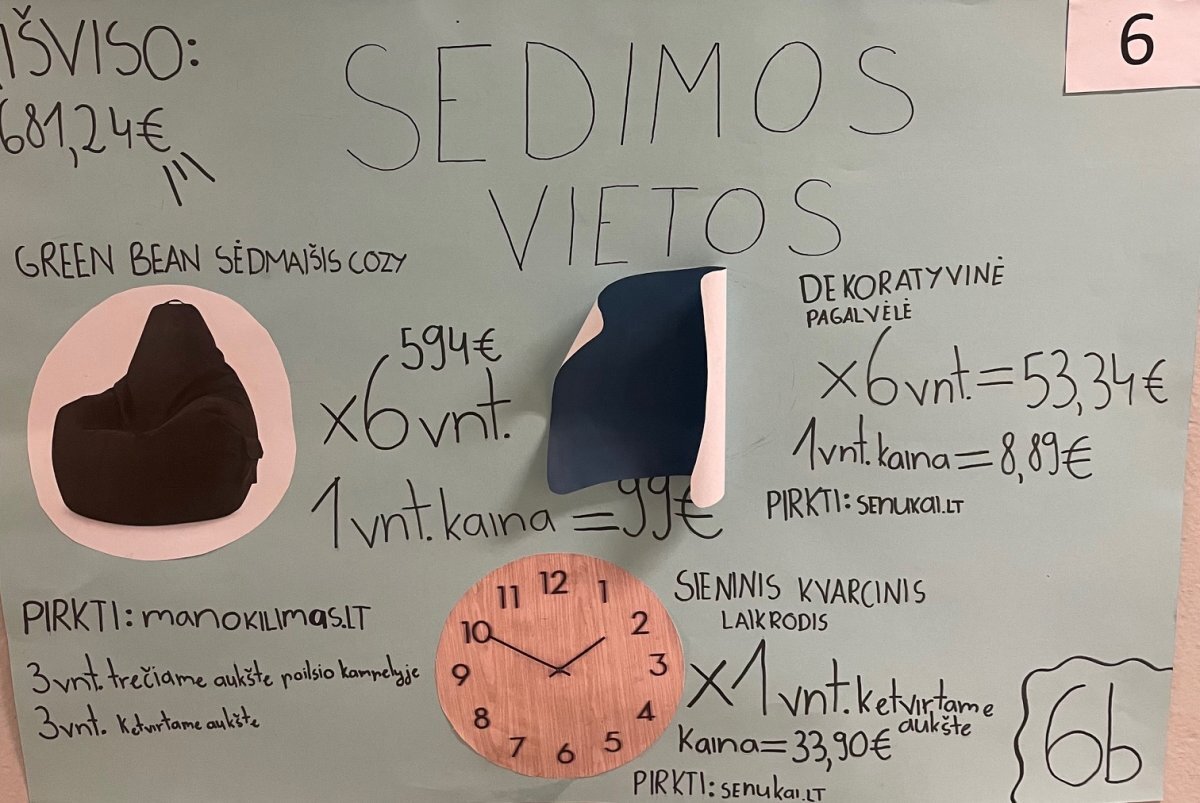 IŠVISO:
681,24€
SEDIMOS
VIETOS
6
GREEN BEAN SĖDMAIŠIS COZY
594€
x6 vnt.
1 vnt. kaina = 99€
PIRKTI: manokilimas.LT
3 vnt. trečiame aukšte poilsio kampelyje
3 vnt. ketvirtame aukšte
DEKORATYVINĖ
PAGALVĖLĖ
x6 vnt. = 53,34€
1 vnt. kaina = 8,89€
PIRKTI: senukai.LT
11 12 1
10 2
9 3
8 4
7 6 5
SIENINIS KVARCINIS
LAIKRODIS
x1 vnt. ketvirtame
aukšte
Kaina = 33,90€
PIRKTI: senukai.LT
6b